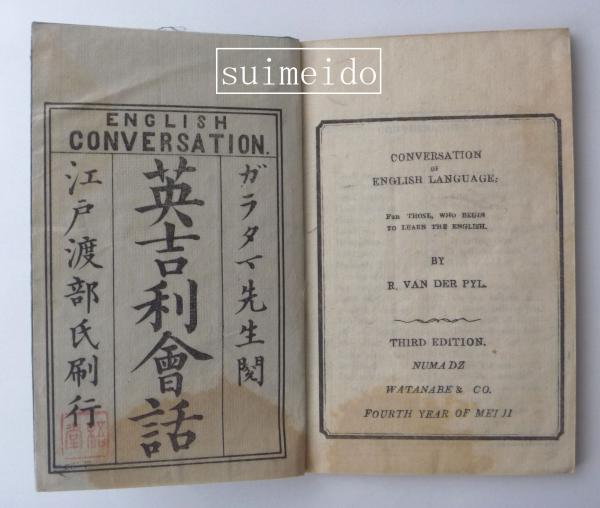 suimeido
ENGLISH
CONVERSATION.
ガラタマ先生閲
英吉利會話
江戸渡部氏刷行
CONVERSATION
OF
ENGLISH LANGUAGE;
FOR THOSE, WHO BEGIN
TO LEARN THE ENGLISH.
BY
R. VAN DER PYL.
THIRD EDITION.
NUMADZ
WATANABE & CO.
FOURTH YEAR OF MEIJI